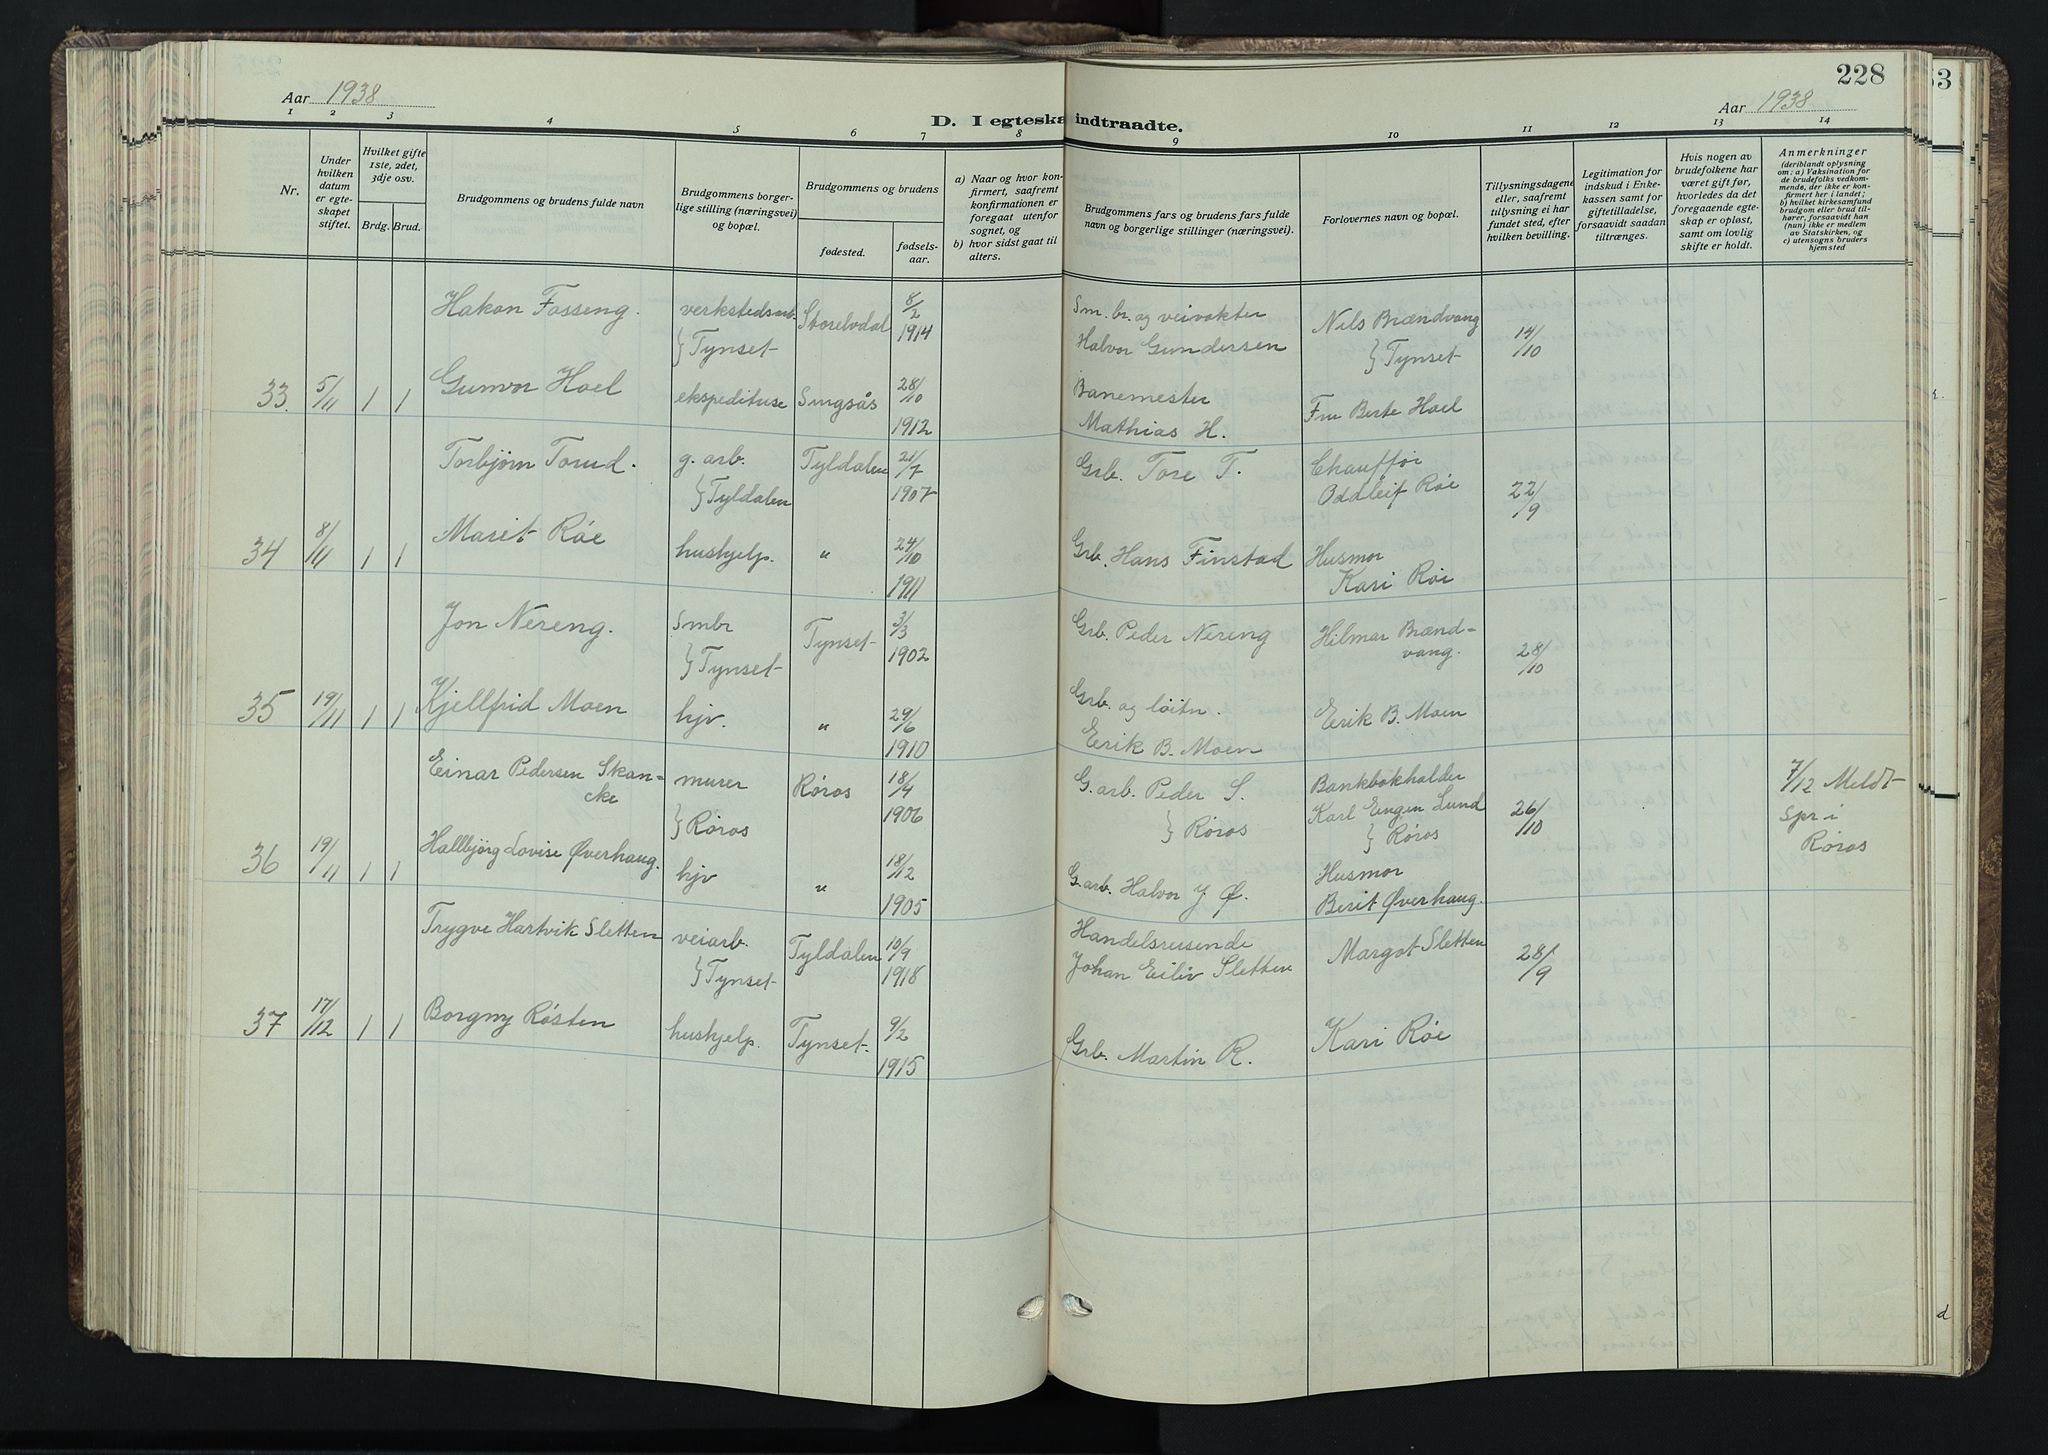 228
53
Aar 1938
Aar 1938
D. I egteska indtraadte.
1 2 3 4 5 6 7 8 9 10 11 12 13 14
Nr.
Under hvilken datum er egteskapet stiftet.
Hvilket gifte 1ste, 2det, 3dje osv.
Brdg. Brud.
Brudgommens og brudens fulde navn
Brudgommens borgerlige stilling (næringsvei) og bopæl.
Brudgommens og brudens
fødested.
fødsels-aar.
a) Naar og hvor konfirmert, saafremt konfirmationen er foregaat utenfor sognet, og
b) hvor sidst gaat til alters.
Brudgommens fars og brudens fars fulde navn og borgerlige stillinger (næringsvei).
Forlovernes navn og bopæl.
Tillysningsdagene eller, saafremt tillysning ei har fundet sted, efter hvilken bevilling.
Legitimation for indskud i Enkekassen samt for giftetilladelse, forsaavidt saadan tiltrænges.
Hvis nogen av brudefolkene har været gift før, hvorledes da det foregaaende egteskap er opløst, samt om lovlig skifte er holdt.
Anmerkninger
(deriblandt oplysning om: a) Vaksination for de brudefolks vedkommende, der ikke er konfirmert her i landet; b) hvilket kirkesamfund brudgom eller brud tilhører, forsaavidt han (hun) ikke er medlem av Statskirken, og c) utensogns bruders hjemsted
Hakon Fosseng. verkstedsarb. } Tynset Storelvdal 8/2 1914 Sm.br. og veivokter Halvor Gundersen Nils Brændvang } Tynset 14/10
33. 5/11 1 1 Gunvor Hoel ekspeditrise Singsås 28/10 1912 Banemester Mathias H. Fru Berte Hoel
Torbjørn Torud. g. arb. } Tyldalen Tyldalen 21/7 1907 Grb. Tore T. Chauffør Oddleif Røe 22/9
34 8/11 1 1 Marit Røe hushjelp. " 24/10 1911 Grb. Hans Finstad Husmor Kari Røe
Jon Nereng. Smbr } Tynset Tynset 3/3 1902 Grb. Peder Nereng Hilmar Brændvang. 28/10
35 19/11 1 1 Kjellfrid Moen hjv. " 29/6 1910 Grb. og løitn. Erik B. Moen Erik B. Moen
Einar Pedersen Skancke murer } Røros Røros 18/4 1906 G. arb. Peder S. } Røros Bankbokholder Karl Eugen Lund } Røros 26/10 7/12 Meldt Spr i Røros
36 19/11 1 1 Hallbjørg Lovise Øverhaug. hjv " 18/12 1905 G. arb. Halvor J Ø. Husmor Berit Øverhaug.
Trygve Hartvik Sletten veiarb. } Tynset Tyldalen 10/9 1918 Handelsreisende Johan Eiliv Sletten Margot Sletten 28/9
37 17/12 1 1 Borgny Røsten hushjelp. Tynset 9/2 1915 Grb. Martin R. Kari Røe
d